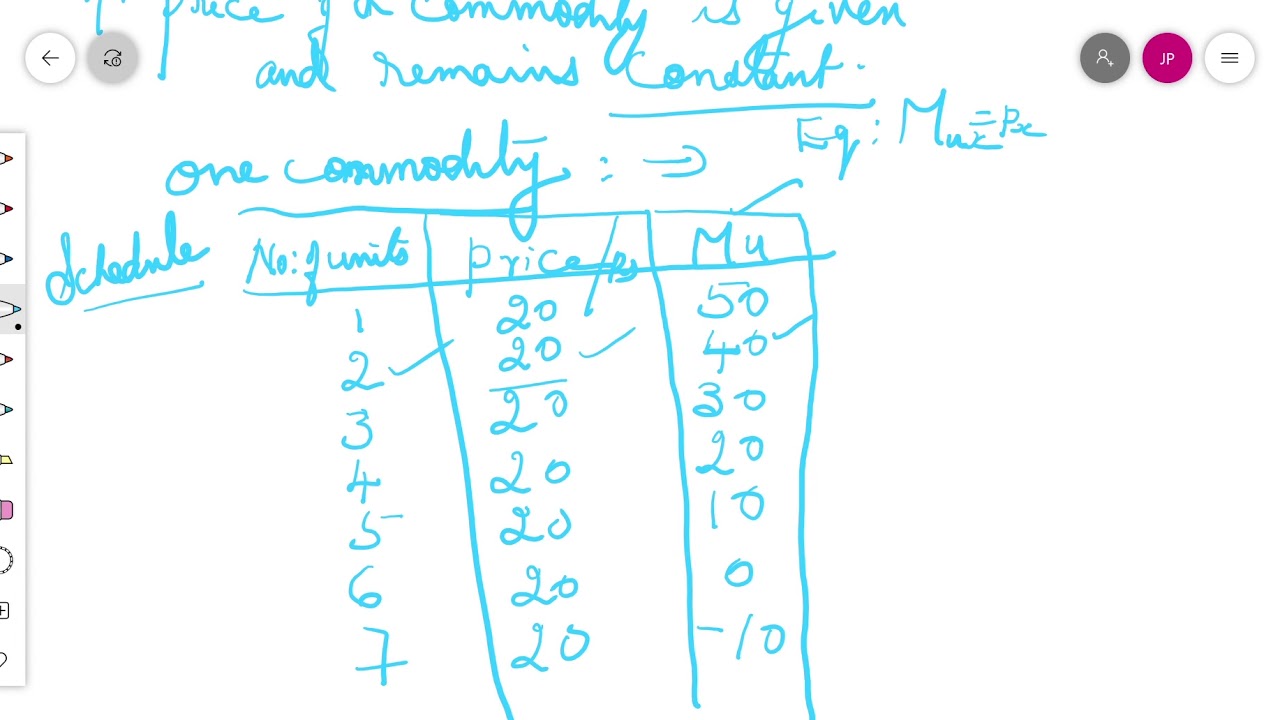 price of a commodity is given
and remains constant.
Eq: Mux = Px
one commodity : →
Schedule
No: of units Price/Rs Mu
1 20 50
2 20 40
3 20 30
4 20 20
5 20 10
6 20 0
7 20 -10
JP